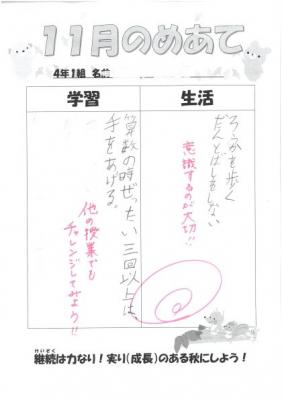 11月のめあて
4年1組 名前
学習
生活
ろう下を歩く
だんとばしをしない
意識するのが大切!!
算数の時ぜったい三回以上は、
手をあげる。
他の授業でも
チャレンジしてみよう!!
けいぞく
継続は力なり!実り(成長)のある秋にしよう!